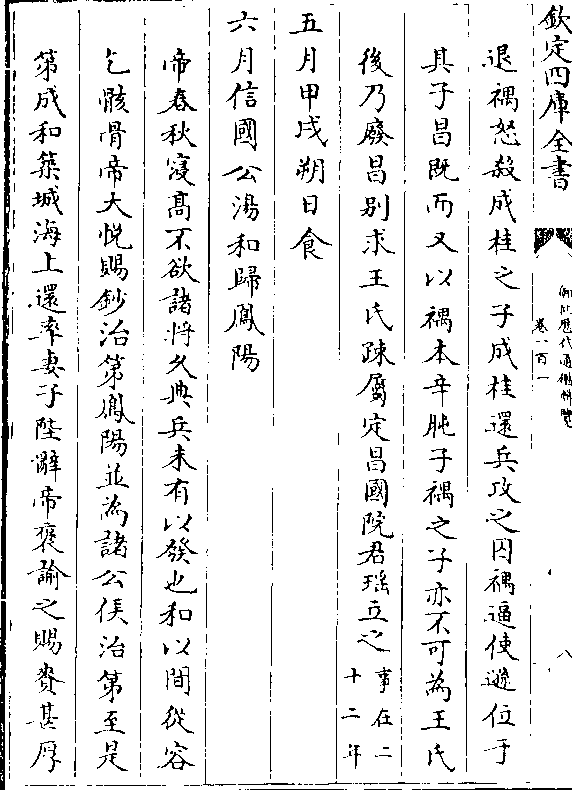 欽定四庫全書
御批歷代通鑑輯覽
卷一百一
八
退禑怒殺成桂之子成桂還兵攻之囚禑逼使遜位于
其子昌既而又以禑本辛旽子禑之子亦不可為王氏
後乃廢昌别求王氏疎屬定昌國院君瑶立之事在二十二年
五月甲戌朔日食
六月信國公湯和歸鳳陽
帝春秋寖髙不欲諸將久典兵未有以發也和以間從容
乞骸骨帝大悦賜鈔治第鳳陽並為諸公侯治第至是
第成和築城海上還率妻子陛辭帝褒諭之賜賚甚厚